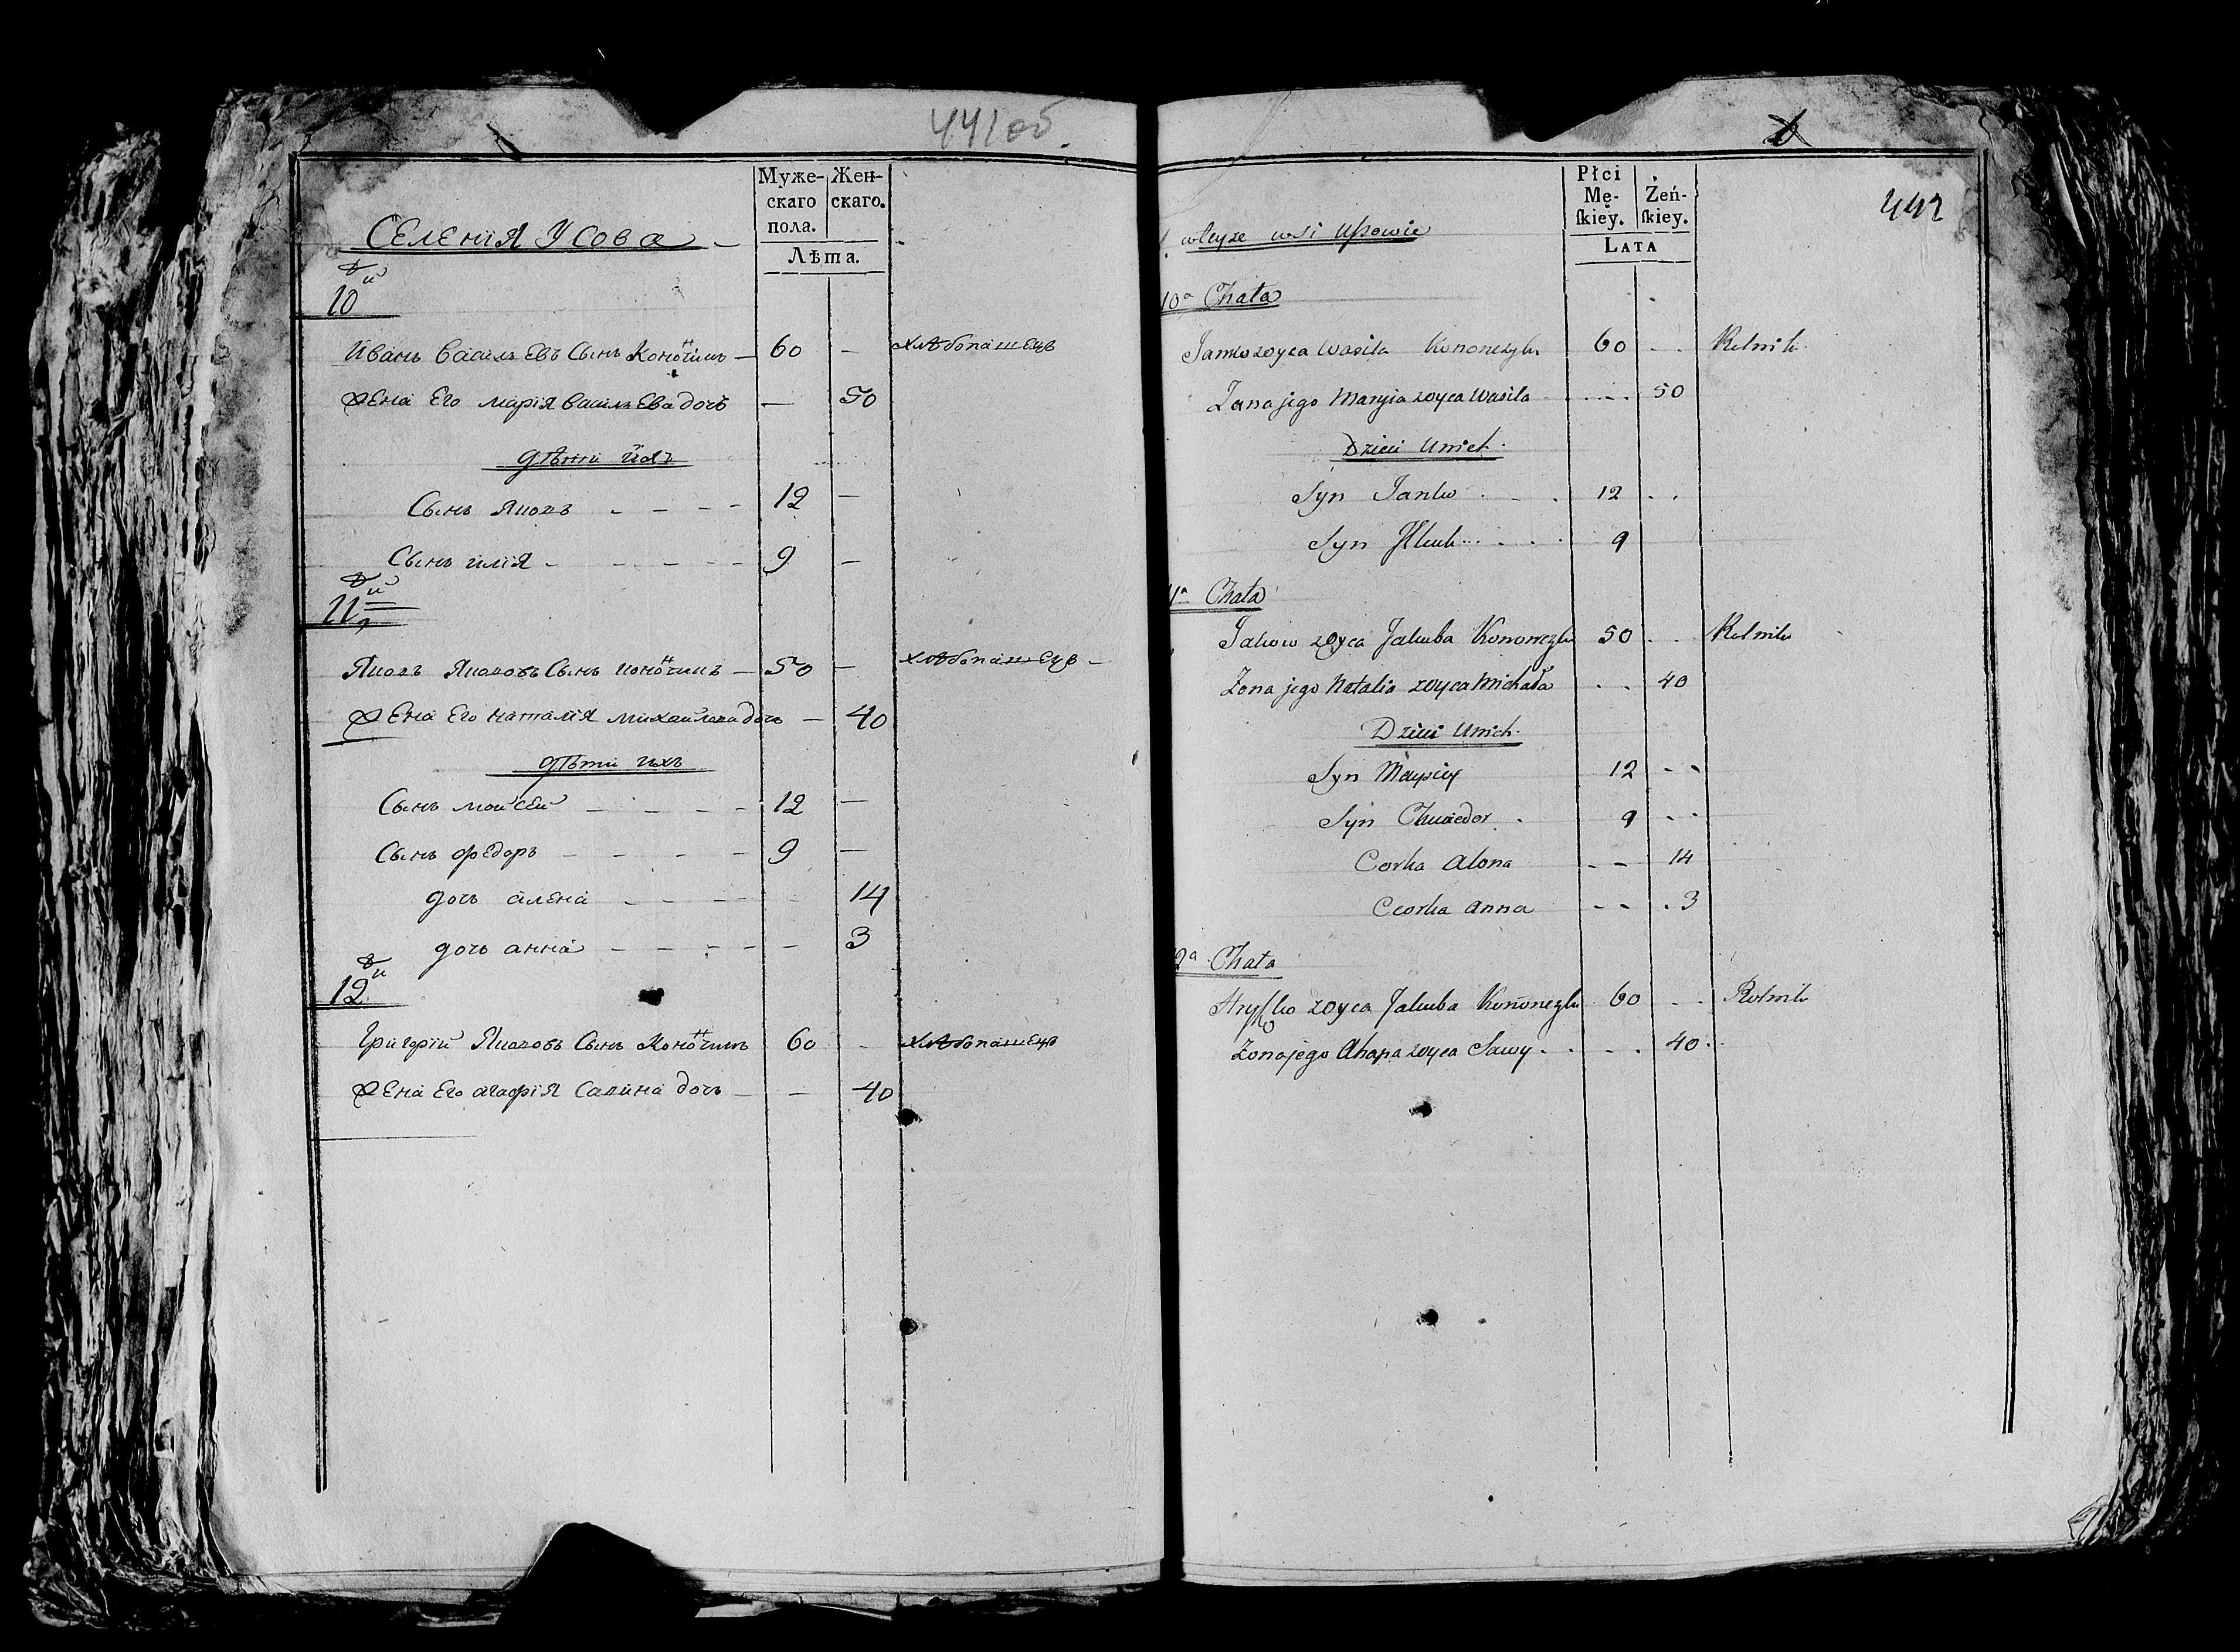 441 об.
Муже-
скаго
пола.
Жен-
скаго.
Лѣта.
Селенія Усова
10й
Иванъ Васильевъ Сынъ Конончикъ — 60 — хлѣбопашецъ
Жена Его Марія Васильева дочь — 50
дѣти ихъ
Сынъ Яковъ - - - - 12 —
Сынъ илія - - - - - 9 —
11й
Яковъ Яковлевъ Сынъ Конончикъ — 50 — хлѣбопашецъ —
Жена Его наталія михайлова дочь — 40
дѣти ихъ
Сынъ мойсей - - - - 12 —
Сынъ федоръ - - - - 9 —
дочь алена - - - - 14
дочь анна - - - - - 3
12й
Григорій Яковлевъ Сынъ Конончикъ 60 - хлѣбопашецъ
Жена Его агафія Савина дочь — — 40
442
Płci
Mę-
skiey.
Żeń-
skiey.
Lata
wteyze wsi Ussowie
10a Chata
Janko zoyca Wasila Kononczyk 60 - - Rolnik
Zona jego Maryia zoyca Wasila - - - 50
Dzieci Unich
Syn Janko - - - 12 - -
Syn Illuk - - - 9
Chata
Jakow zoyca Jakuba Kononczyk 50 - - Rolnik
Zona jego Natalia zoyca Michała - - 40
Dzieci Unich
Syn Maysiey 12 - -
Syn Chwiedor - 9 - -
Corka Alona - - 14
Corka Anna - - - 3
2a Chata
Hryszko zoyca Jakuba Kononczyk 60 - - Rolnik
Zona jego Ahapa zoyca Sawy - - - - 40